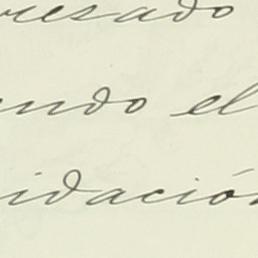 resado
endo el
idación